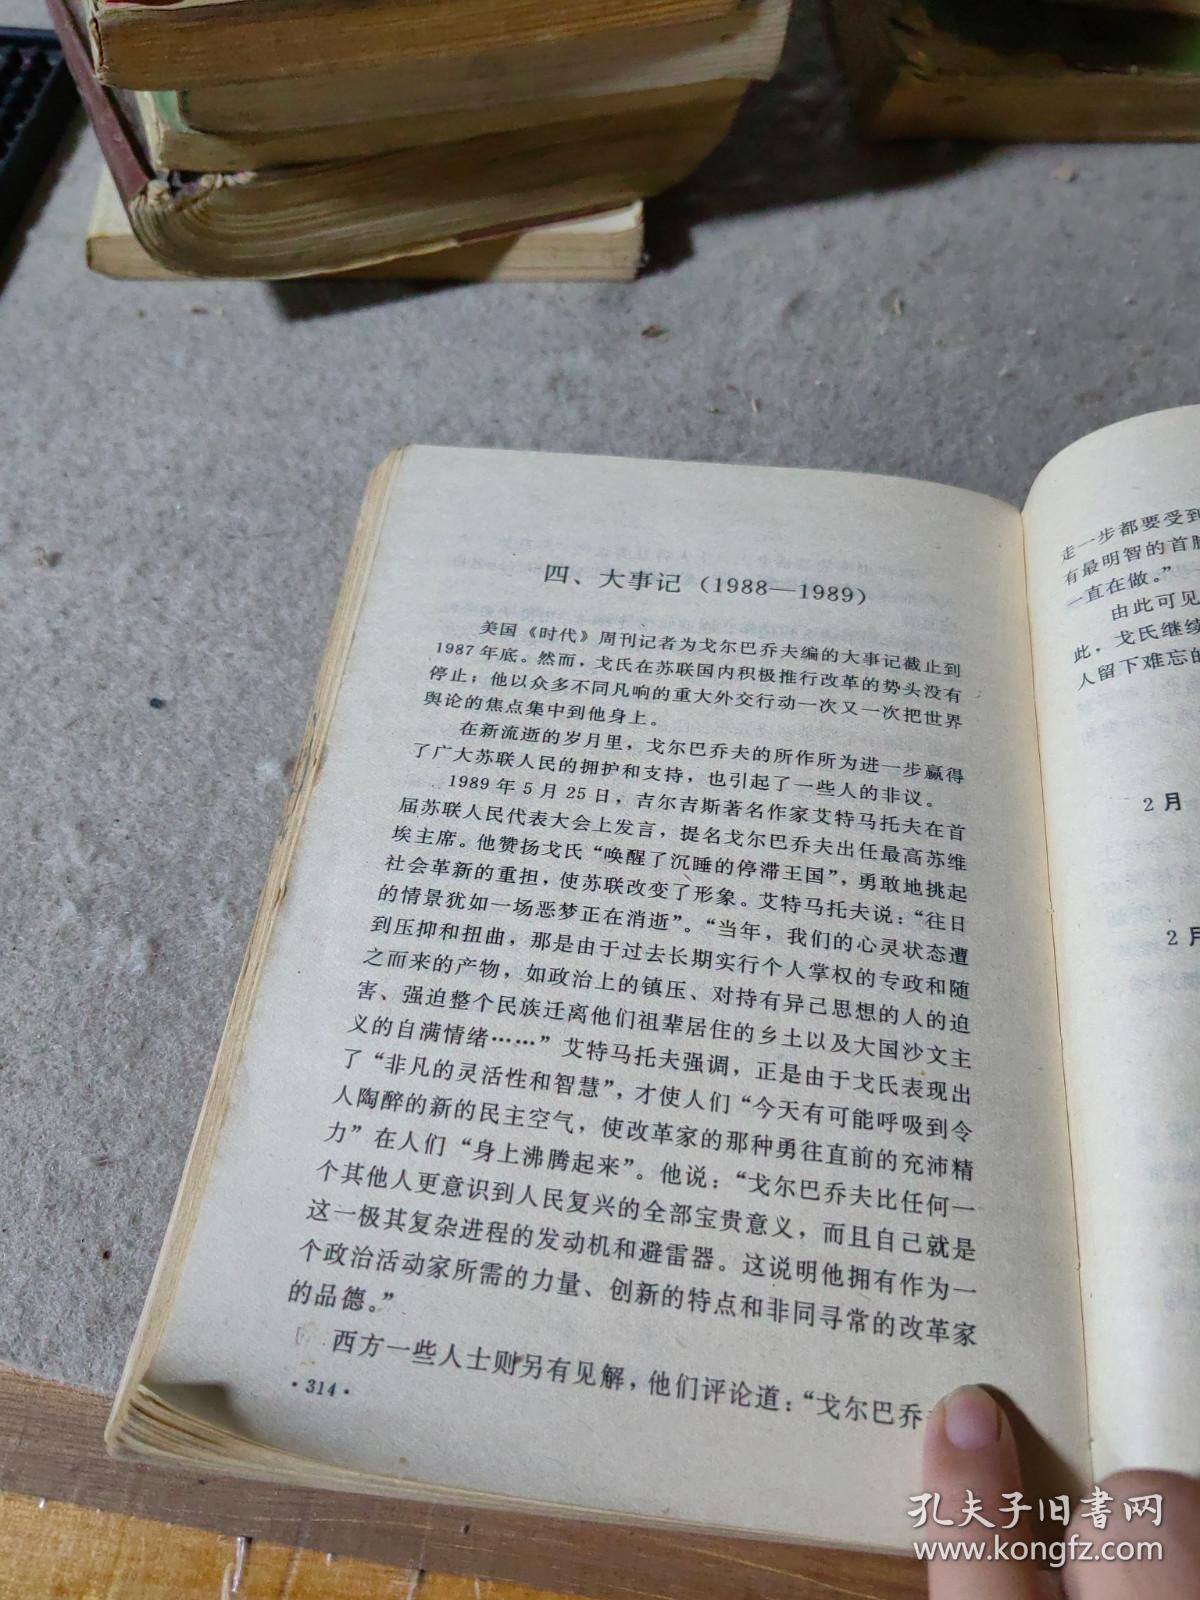 四、大事记（1988—1989）
美国《时代》周刊记者为戈尔巴乔夫编的大事记截止到
1987年底。然而，戈氏在苏联国内积极推行改革的势头没有
停止；他以众多不同凡响的重大外交行动一次又一次把世界
舆论的焦点集中到他身上。
在新流逝的岁月里，戈尔巴乔夫的所作所为进一步赢得
了广大苏联人民的拥护和支持，也引起了一些人的非议。
1989年5月25日，吉尔吉斯著名作家艾特马托夫在首
届苏联人民代表大会上发言，提名戈尔巴乔夫出任最高苏维
埃主席。他赞扬戈氏“唤醒了沉睡的停滞王国”，勇敢地挑起
社会革新的重担，使苏联改变了形象。艾特马托夫说：“往日
的情景犹如一场恶梦正在消逝”。“当年，我们的心灵状态遭
到压抑和扭曲，那是由于过去长期实行个人掌权的专政和随
之而来的产物，如政治上的镇压、对持有异己思想的人的迫
害、强迫整个民族迁离他们祖辈居住的乡土以及大国沙文主
义的自满情绪……”艾特马托夫强调，正是由于戈氏表现出
了“非凡的灵活性和智慧”，才使人们“今天有可能呼吸到令
人陶醉的新的民主空气，使改革家的那种勇往直前的充沛精
力”在人们“身上沸腾起来”。他说：“戈尔巴乔夫比任何一
个其他人更意识到人民复兴的全部宝贵意义，而且自己就是
这一极其复杂进程的发动机和避雷器。这说明他拥有作为一
个政治活动家所需的力量、创新的特点和非同寻常的改革家
的品德。”
西方一些人士则另有见解，他们评论道：“戈尔巴乔
·314·
走一步都要受到
有最明智的首脑
一直在做。”
由此可见
此，戈氏继续
人留下难忘的
2月
2月
孔夫子旧书网
www.kongfz.com